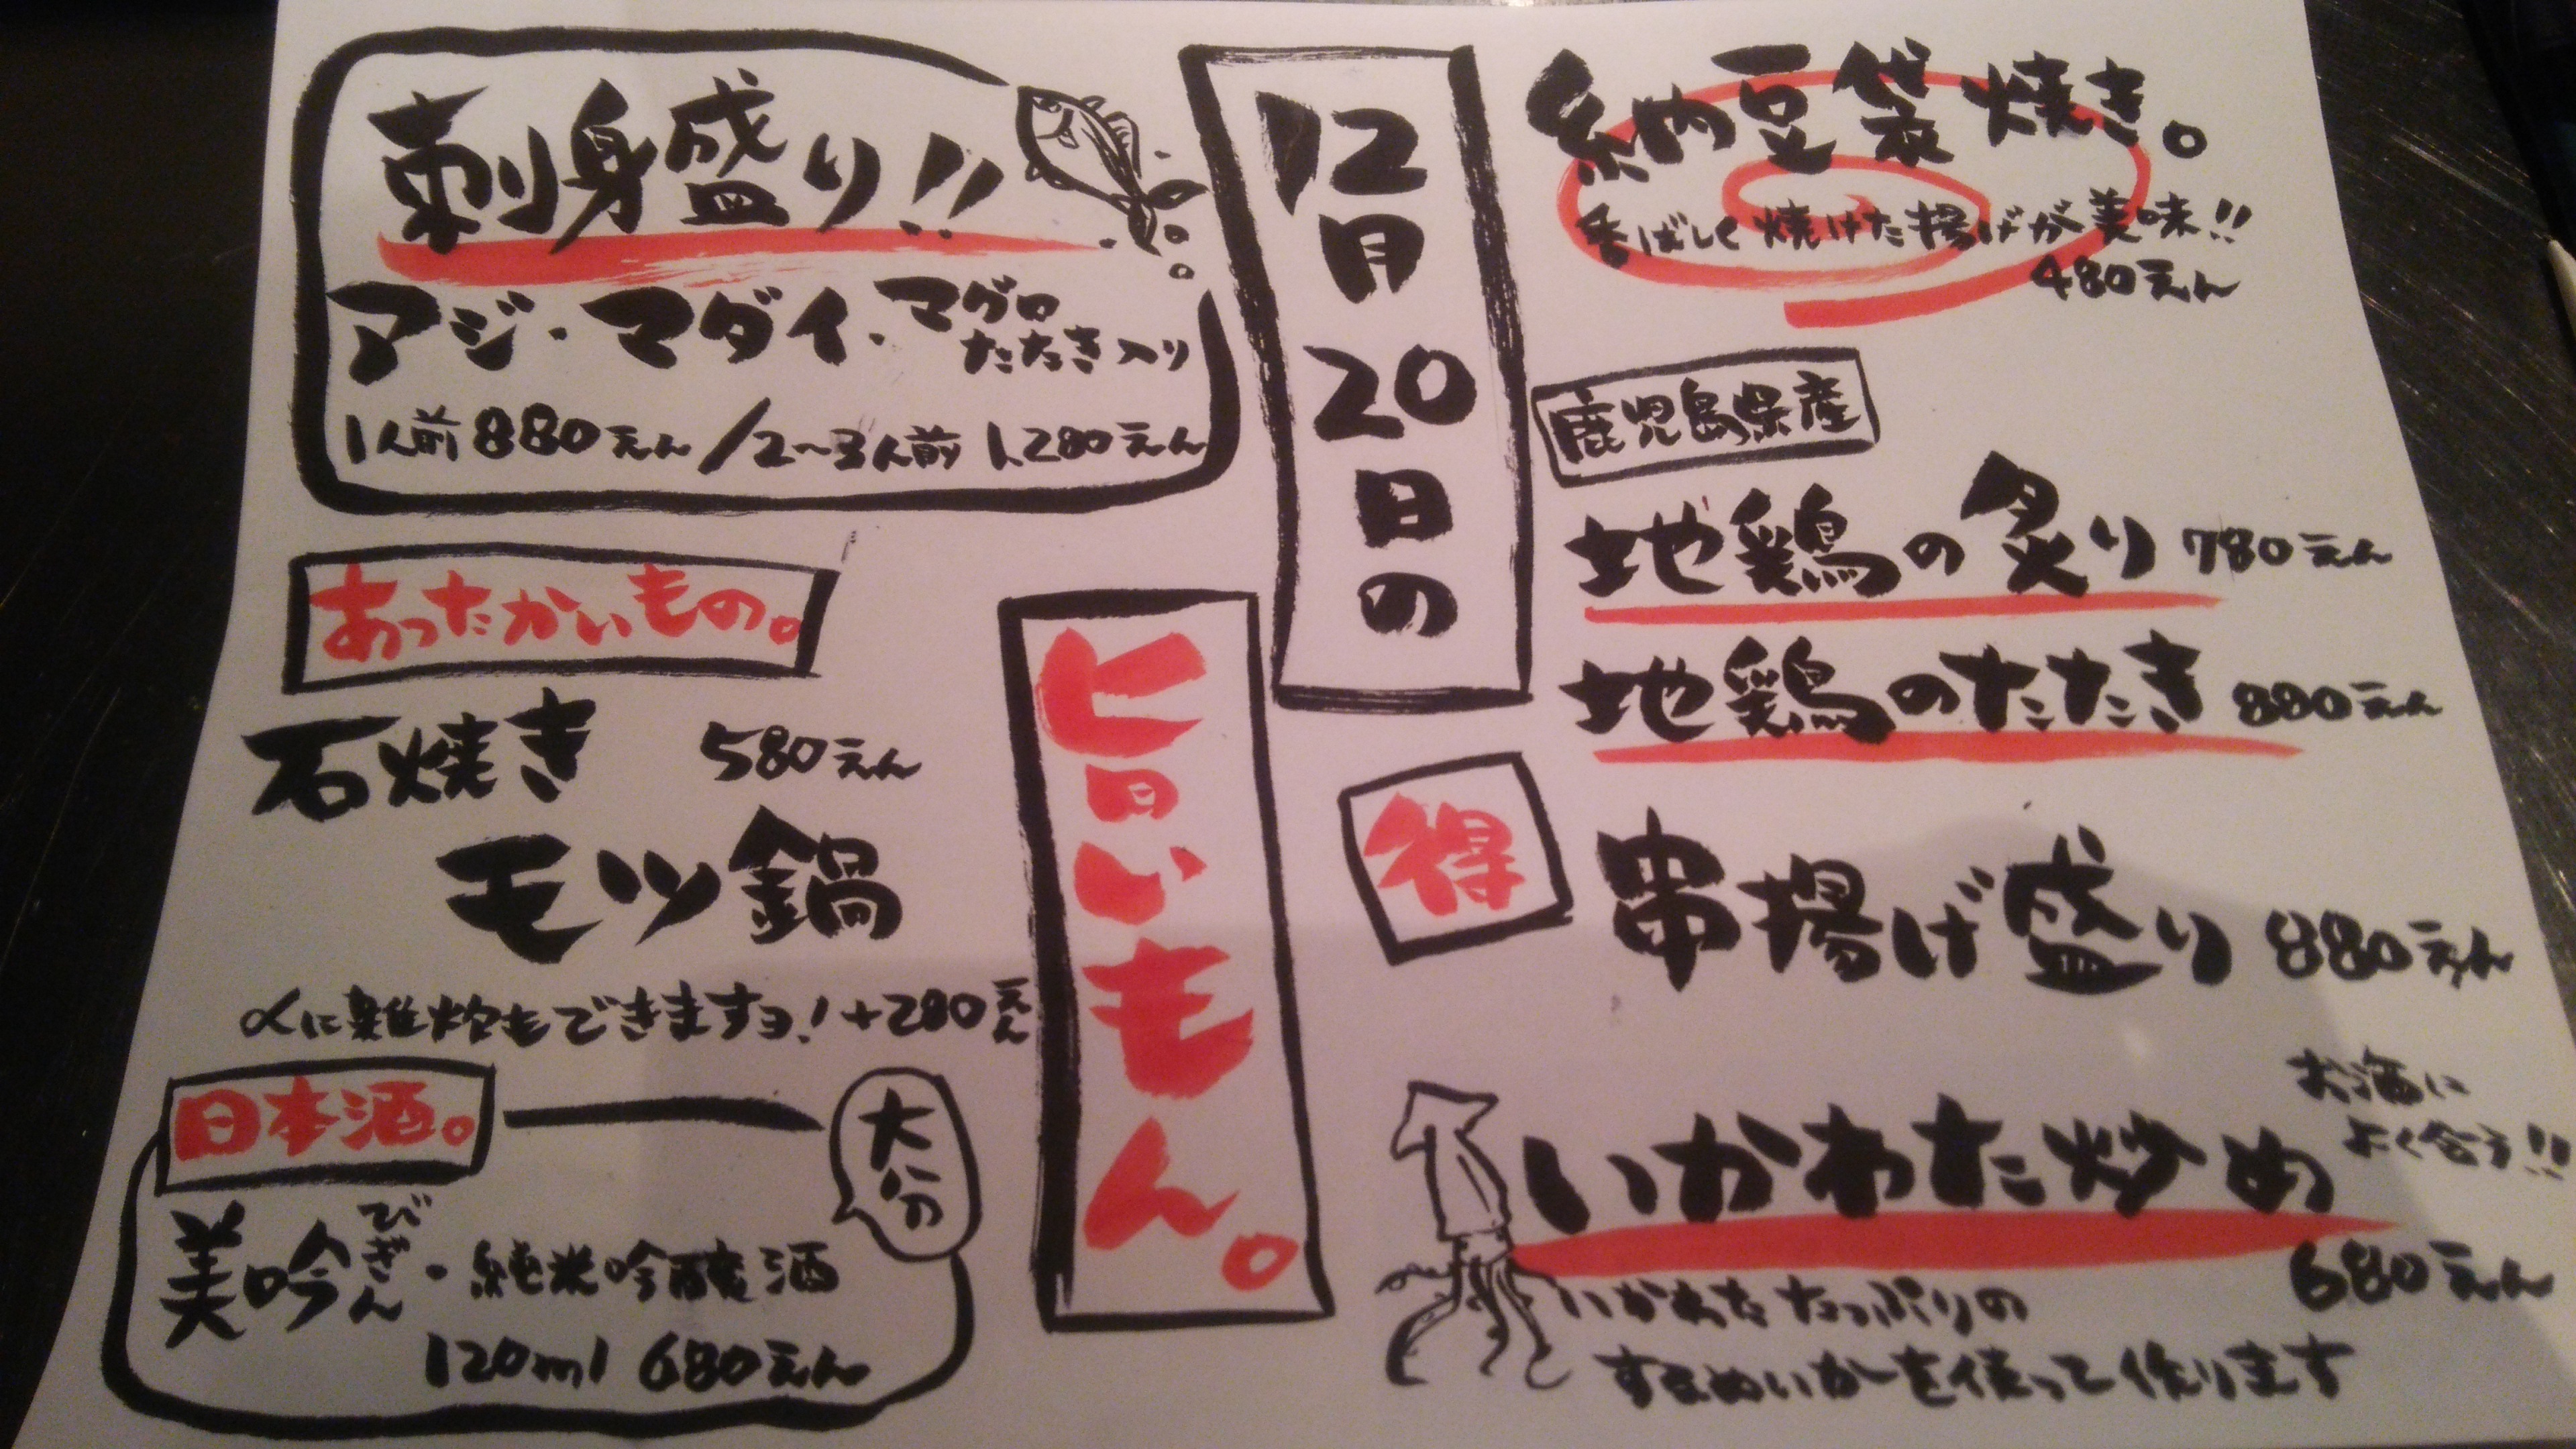 12月20日の
ヒロいもん。
納豆袋焼き。
香ばしく焼けた揚げが美味!!
480えん
鹿児島県産
地鶏の炙り 780えん
地鶏のたたき 880えん
得
串揚げ盛り 880えん
お酒に
よく合う!!
いかわた炒め
680えん
いかわたたっぷりの
するめいかーを使って作ります
刺身盛り!!
アジ・マダイ・マグロたたき入り
1人前880えん/2〜3人前1,280えん
あったかいもの。
石焼き 580えん
モツ鍋
〆に雑炊もできますヨ!+280えん
日本酒。
大分
美吟びぎん・純米吟醸酒
120ml 680えん